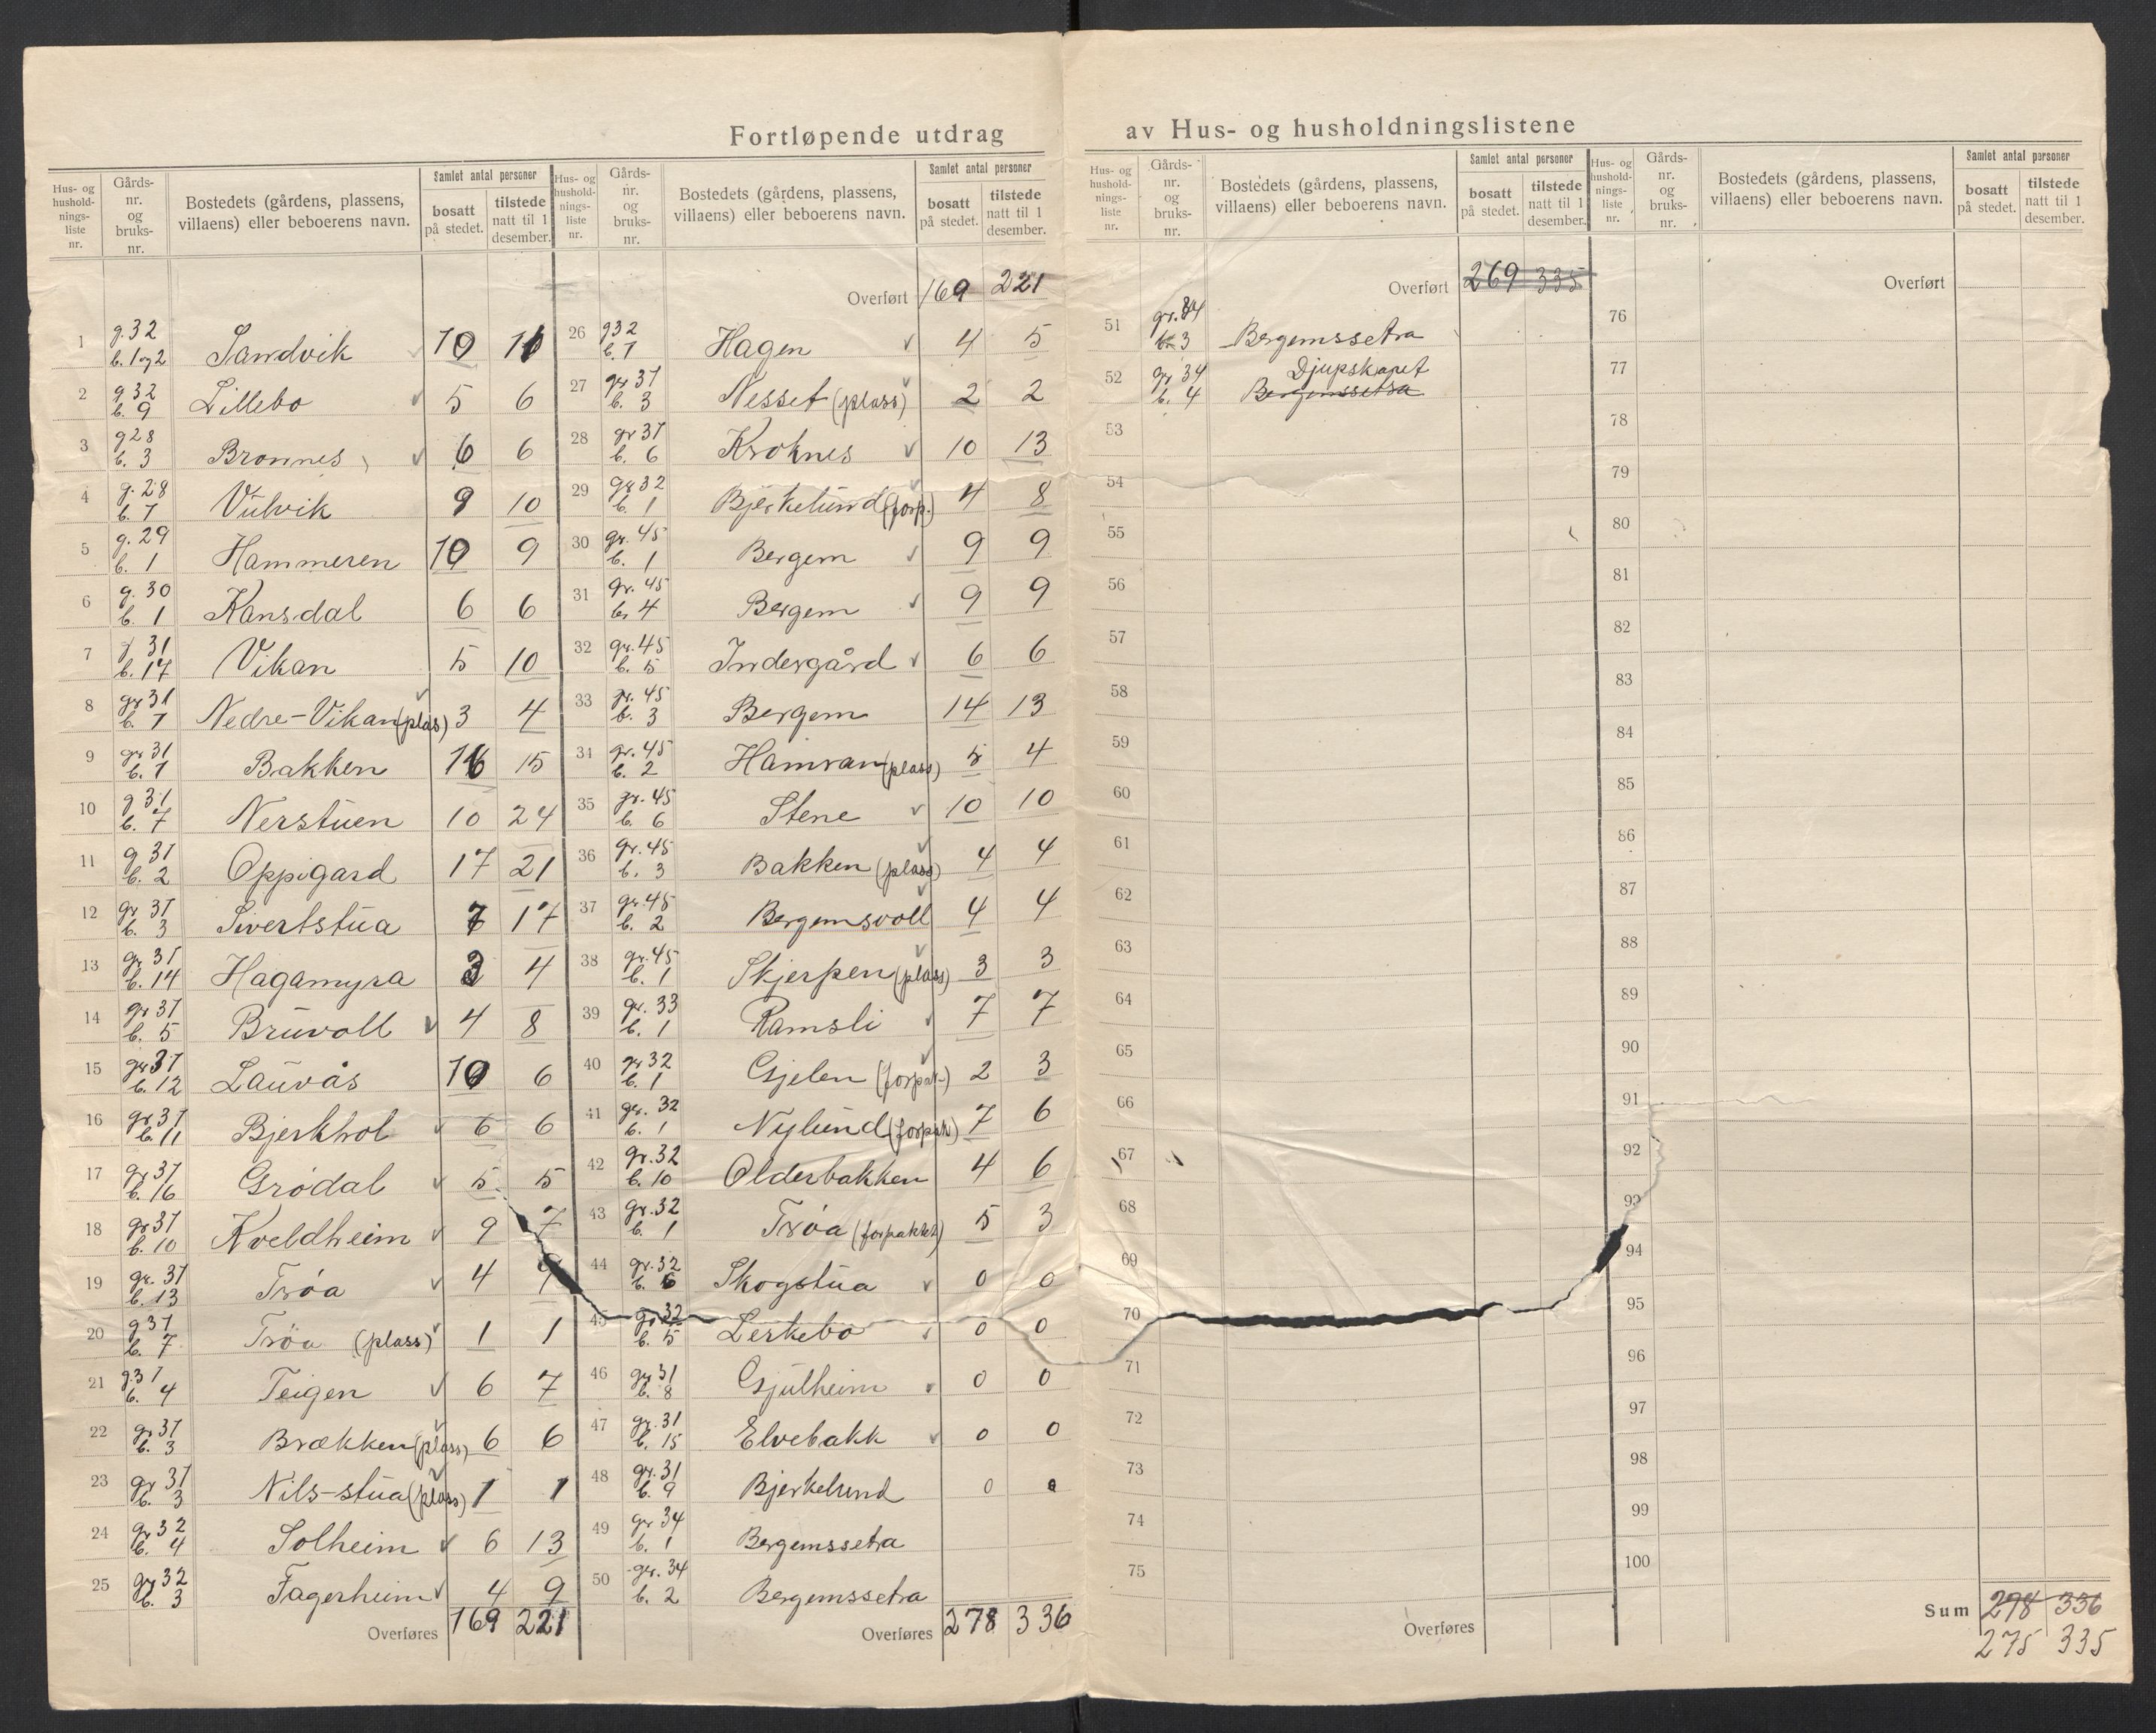 Fortløpende utdrag av Hus- og husholdningslistene
Hus- og husholdningsliste nr. | Gårds-nr. og bruks-nr. | Bostedets (gårdens, plassens, villaens) eller beboerens navn. | Samlet antal personer: bosatt på stedet. | tilstede natt til 1 desember.
1 g.32 b.1og2 Sandvik
2 g32 b.9 Lillebo 5 6
3 g28 b.3 Bronnes 6 6
4 g.28 b.1 Vulvik 9 10
5 g.29 b.1 Hammeren 10 9
6 g.30 b.1 Kansdal 6 6
7 g 31 b.17 Vikan 5 10
8 gr31 b.1 Nedre-Vikan (plas) 3 4
9 gr31 b.1 Bakken 16 15
10 g31 b.7 Nerstuen 10 24
11 g31 b.2 Oppigard 17 21
12 gr 31 b.3 Sivertstua 7 17
13 gr 31 b.14 Hagamyra 3 4
14 gr31 b.5 Bruvoll 4 8
15 gr31 b.12 Lauvås 10 6
16 gr.31 b.11 Bjerkhol 6 6
17 gr31 b.16 Grødal 5 5
18 gr31 b.10 Kveldheim 9 7
19 gr.31 b.13 Trøa 4
20 g31 b.7 Trøa (plass) 1 1
21 g.31 b.4 Teigen 6 7
22 gr31 b.3 Brækken (plass) 6 6
23 gr 31 b.3 Nils-stua (plass) 1 1
24 gr32 b.4 Solheim 6 13
25 gr32 b.3 Fagerheim 4 9
Overføres 169 221
Hus- og husholdningsliste nr. | Gårds-nr. og bruks-nr. | Bostedets (gårdens, plassens, villaens) eller beboerens navn. | Samlet antal personer: bosatt på stedet. | tilstede natt til 1 desember.
Overført 169 221
26 g32 b.7 Hagen 4 5
27 gr 31 b.3 Nesset (plass) 2 2
28 gr 31 b.6 Kroknes 10 13
29 gr 32 b.1 Bjerkelund (forp.) 4 8
30 gr.45 b.1 Bergem 9 9
31 gr.45 b.4 Bergem 9 9
32 gr.45 b.5 Indergård 6 6
33 gr.45 b.3 Bergem 14 13
34 gr.45 b.2 Hamran (plass) 5 4
35 gr.45 b.6 Stene 10 10
36 gr.45 b.3 Bakken (plass) 4 4
37 gr.45 b.2 Bergemsvoll 4 4
38 gr.45 b.1 Skjerpen (plass) 3 3
39 gr.33 b.1 Ramsli 7 7
40 gr32 b.1 Gjelen (forpak.) 2 3
41 gr.32 b.1 Nylund (forpak) 7 6
42 gr.32 b.10 Olderbakken 4 6
43 gr.32 b.1 Trøa (forpaktet) 5 3
44 gr.32 b.6 Skogstua 0 0
45 gr32 b.5 Lerkebo 0 0
46 gr.31 b.8 Gjulheim 0 0
47 gr.31 b.15 Elvebakk 0 0
48 gr.31 b.9 Bjerkelund 0 0
49 gr 34 b.1 Bergemssetra
50 gr.34 b.2 Bergemssetra
Overføres 278 336
Hus- og husholdningsliste nr. | Gårds-nr. og bruks-nr. | Bostedets (gårdens, plassens, villaens) eller beboerens navn. | Samlet antal personer: bosatt på stedet. | tilstede natt til 1 desember.
Overført 269 335
51 gr.34 b.3 Bergemssetra
52 gr 34 b.4 Djupskaret
Bergemssetra
53
54
55
56
57
58
59
60
61
62
63
64
65
66
67
68
69
70
71
72
73
74
75
Overføres
Hus- og husholdningsliste nr. | Gårds-nr. og bruks-nr. | Bostedets (gårdens, plassens, villaens) eller beboerens navn. | Samlet antal personer: bosatt på stedet. | tilstede natt til 1 desember.
Overført
76
77
78
79
80
81
82
83
84
85
86
87
88
89
90
91
92
93
94
95
96
97
98
99
100
Sum 278 336
275 335